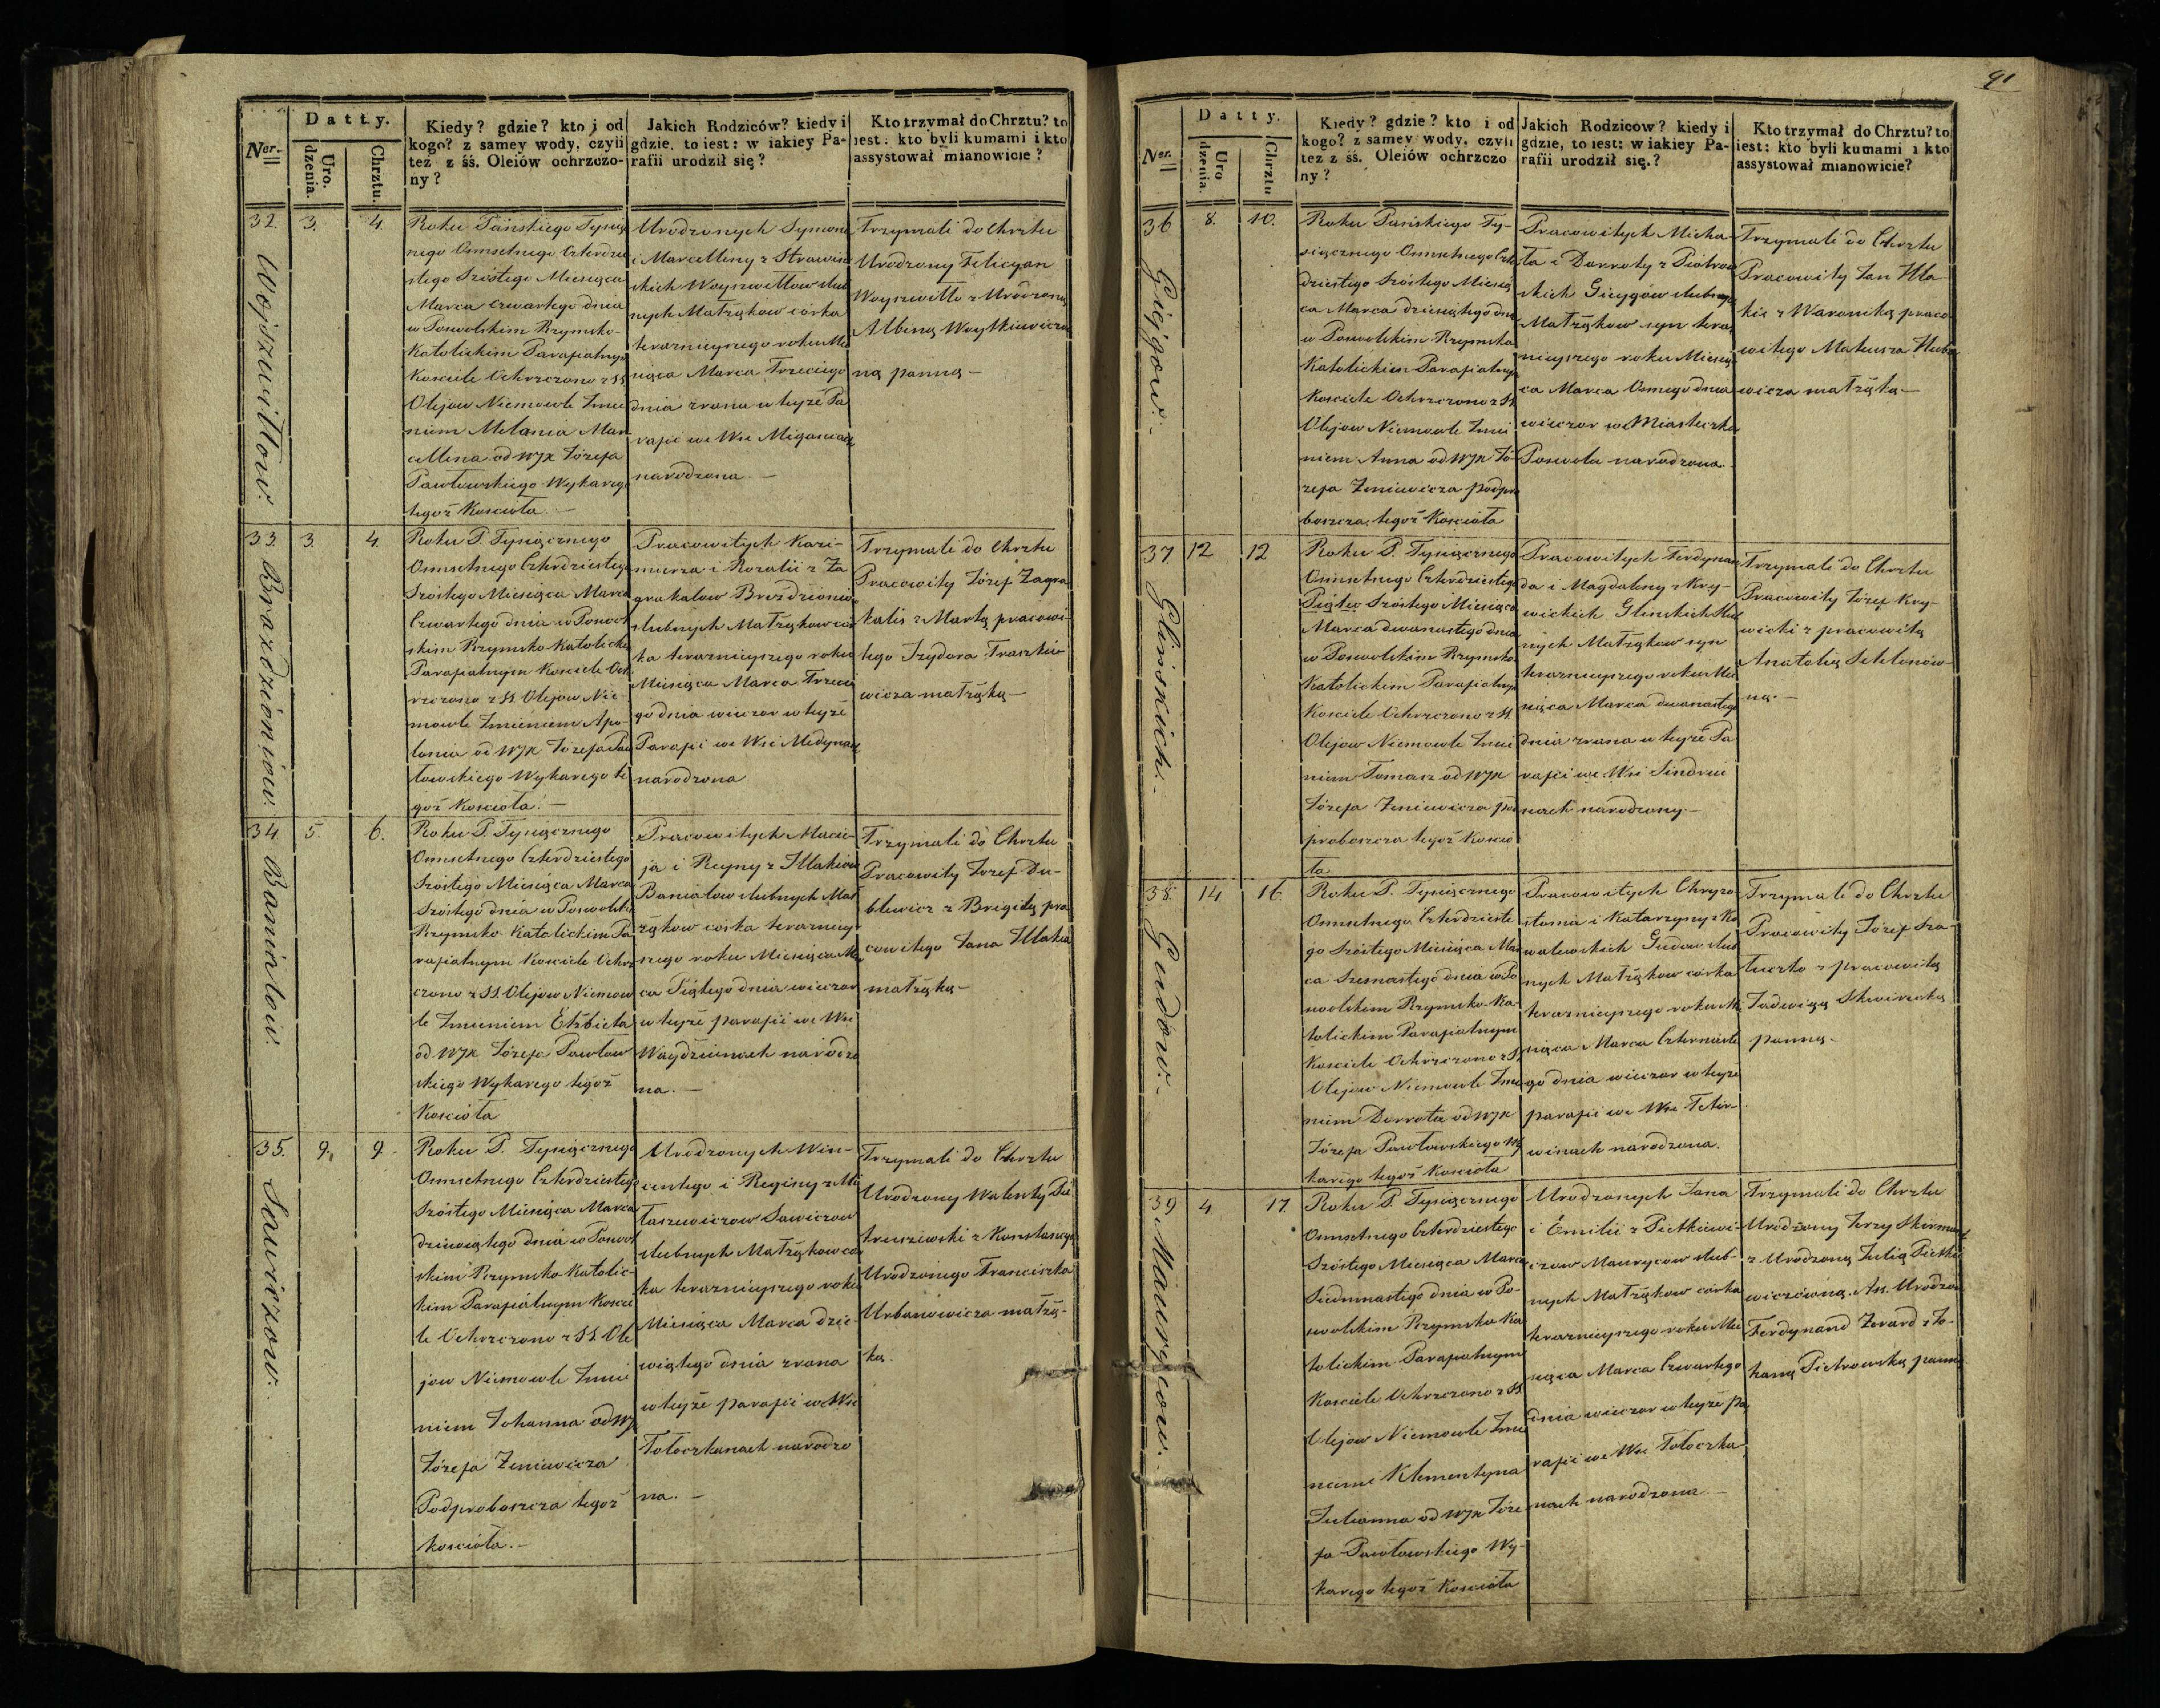 91
Ner.
Datty.
Uro. dzenia.
Chrztu.
Kiedy? gdzie? kto i od
kogo? z samey wody, czyli
też z śś. Oleiów ochrzczo-
ny?
Jakich Rodziców? kiedy i
gdzie, to iest: w iakiey Pa-
rafii urodził się?
Kto trzymał do Chrztu? to
iest: kto byli kumami i kto
assystował mianowicie?
32.
3.
4.
Wojszwiłłow.
Roku Pańskiego Tysiącz
nego Osmsetnego Czterdzie
stego Szóstego Miesiąca
Marca Czwartego dnia
w Poswolskim Rzymsko-
Katolickim Parafialnym
Kosciele Ochrzczono z SS
Olejow Niemowle Imie
niem Melania Mar
cellena od WJX Józefa
Pawłowskiego Wykarego
tegoż Koscioła.—
Urodzonych Symona
i Marcelliny z Strawiń
skich Woyszwiłłow slub
nych Małżąkow córka
teraznieyszego roku Mie
siąca Marca Trzeciego
dnia zrana w teyże Pa
rafii we Wsi
narodzona.—
Trzymali do Chrztu
Urodzony Felicyan
Woyszwiłło z Urodzoną
Albiną Woytkiewiczo
ną panną—
33.
3.
4.
Brazdzioniow.
Roku P. Tysiącznego
Osmsetnego Czterdziestego
Szóstego Miesiąca Marca
Czwartego dnia w Poswol
skim Rzymsko-Katolickim
Parafialnym Kosciele Och
rzczono z SS. Olejow Nie-
mowle Imieniem Apo-
lonia od WJX Jozefa Paw
łowskiego Wykarego te
goż Kosciola.—
Pracowitych Kazi-
mierza i Rozalii z Za
grakalow Brazdzioniow
slubnych Małżąkow cór
ka teraznieyszego roku
Miesiąca Marca Trzecie
go dnia wieczor w teyże
Parafii we Wsi
narodzona
Trzymali do Chrztu
Pracowity Józef Zagra
kalis z Martą pracowi-
tego Izydora Traszkie
wicza małżąką—
34
5.
6.
Baniulow.
Roku P. Tysiącznego
Osmsetnego Czterdziestego
Szóstego Miesiąca Marca
Szóstego dnia w Poswolski
Rzymsko Katolickim Pa
rafialnym Kosciele Ochrz
czono z SS Olejow Niemow
le Imieniem Elżbieta
od WJX Józefa Pawłow
skiego Wykarego tegoż
Kosciola
Pracowitych Macie-
ja i Reginy z
slubnych Mał
żąkow córka terazniey
szego roku Miesiąca Mar
ca Piątego dnia wieczor
w teyże parafii we Wsi
narodzo
na.—
Trzymali do Chrztu
Pracowity Jozef Du-
blewicz z Brigidą pra
cowitego Jana
małżąką—
35.
9.
9.
Sawiczow.
Roku P. Tysiącznego
Osmsetnego Czterdziestego
Szóstego Miesiąca Marca
dziewiątego dnia w Poswol
skim Rzymsko-Katolic-
kim Parafialnym Koscie
le Ochrzczono z SS Ole
jow Niemowle Imie
niem Johanna od WJX
Józefa Zeniewicza
Podproboszcza tegoż
Kosciola.—
Urodzonych Win-
centego i Reginy z Mi
łaszewiczow Sawiczow
slubnych Małżąkow cór
ka teraznieyszego roku
Miesiąca Marca dzie-
wiątego dnia zrana
w teyże parafii we Wsi
Tołoczkanach narodzo
na.—
Trzymali do Chrztu
Urodzony Walenty Pie
traszewski z Konstancyą
Urodzonego Franciszka
Urbanowicza małżą-
ką.
Ner.
Datty.
Uro dzenia.
Chrztu
Kiedy? gdzie? kto i od
kogo? z samey wody, czyli
też z śś. Oleiów ochrzczo
ny?
Jakich Rodziców? kiedy i
gdzie, to iest: w iakiey Pa-
rafii urodził się.?
Kto trzymał do Chrztu? to
iest: kto byli kumami i kto
assystował mianowicie?
36
8.
10.
Giegow.
Roku Pańskiego Ty-
siącznego Osmsetnego Czter
dziestego Szóstego Miesią
ca Marca dziesiątego dnia
w Poswolskim Rzymsko
Katolickim Parafialnym
Kosciele Ochrzczono z SS
Olejow Niemowle Imie
niem Anna od WJX Jó-
zefa Zeniewicza podpro
boszcza tegoż Kosciola
Pracowitych Micha
ła i Dorroty z Piotrow
skich Giegow slubnych
Małżąkow syn teraz
nieyszego roku Miesią
ca Marca Osmego dnia
wieczor we Miasteczku
Poswolu narodzona.
Trzymali do Chrztu
Pracowity Jan
z Waroniką praco
witego Mateusza
wicza małżąką.—
37.
12
12
Glinskich.
Roku P. Tysiącznego
Osmsetnego Czterdziestego
Piątec Szóstego Miesiąca
Marca dwanastego dnia
w Poswolskim Rzymsko
Katolickim Parafialnym
Kosciele Ochrzczono z SS
Olejow Niemowle Imie
niem Tomasz od WJX
Józefa Zeniewicza pod
proboszcza tegoż Koscio
ła
Pracowitych Ferdynan
da i Magdaleny z Kry-
wickich Glinskich slub
nych Małżąkow syn
teraznieyszego roku Mie
siąca Marca dwanastego
dnia zrana w teyże Pa
rafii we Wsi
nach narodzony—
Trzymali do Chrztu
Pracowity Józef Kry-
wicki z pracowitą
Anatolią
ną.—
38.
14
16.
Gudow.
Roku P. Tysiącznego
Osmsetnego Czterdzieste
go Szóstego Miesiąca Mar
ca Szesnastego dnia w Po
swolskim Rzymsko-Ka-
tolickim Parafialnym
Kosciele Ochrzczono z SS
Olejow Niemowle Imie
niem Dorrota od WJX
Józefa Pawłowskiego Wy
karego tegoż Kosciola
Pracowitych Chryzo
stoma i Katarzyny z Ko
walewskich Gudow slub
nych Małżąkow córka
teraznieyszego roku Mie
siąca Marca Czternaste
go dnia wieczor w teyże
parafii we Wsi Teter-
winach narodzona.
Trzymali do Chrztu
Pracowity Józef
z pracowitą
Jadwigą
panną—
39
4.
17.
Maurycow.
Roku P. Tysiącznego
Osmsetnego Czterdziestego
Szóstego Miesiąca Marca
Siedmnastego dnia w Po-
swolskim Rzymsko Ka
tolickim Parafialnym
Kosciele Ochrzczono z SS
Olejow Niemowle Imie
niem Klementyna
Julianna od WJX Józe
fa Pawłowskiego Wy-
karego tegoż Kosciola
Urodzonych Jana
i Emilii z Pietkiewi-
czow Maurycow slub-
nych Małżąkow córka
teraznieyszego roku Mie
siąca Marca Czwartego
dnia wieczor w teyże pa
rafii we Wsi Tołoczka
nach narodzona—
Trzymali do Chrztu
Urodzony Jerzy
z Urodzoną Julią Pietkie
wiczówną. Ass. Urodzon
Ferdynand z Jo-
hanną Piotrowską panną